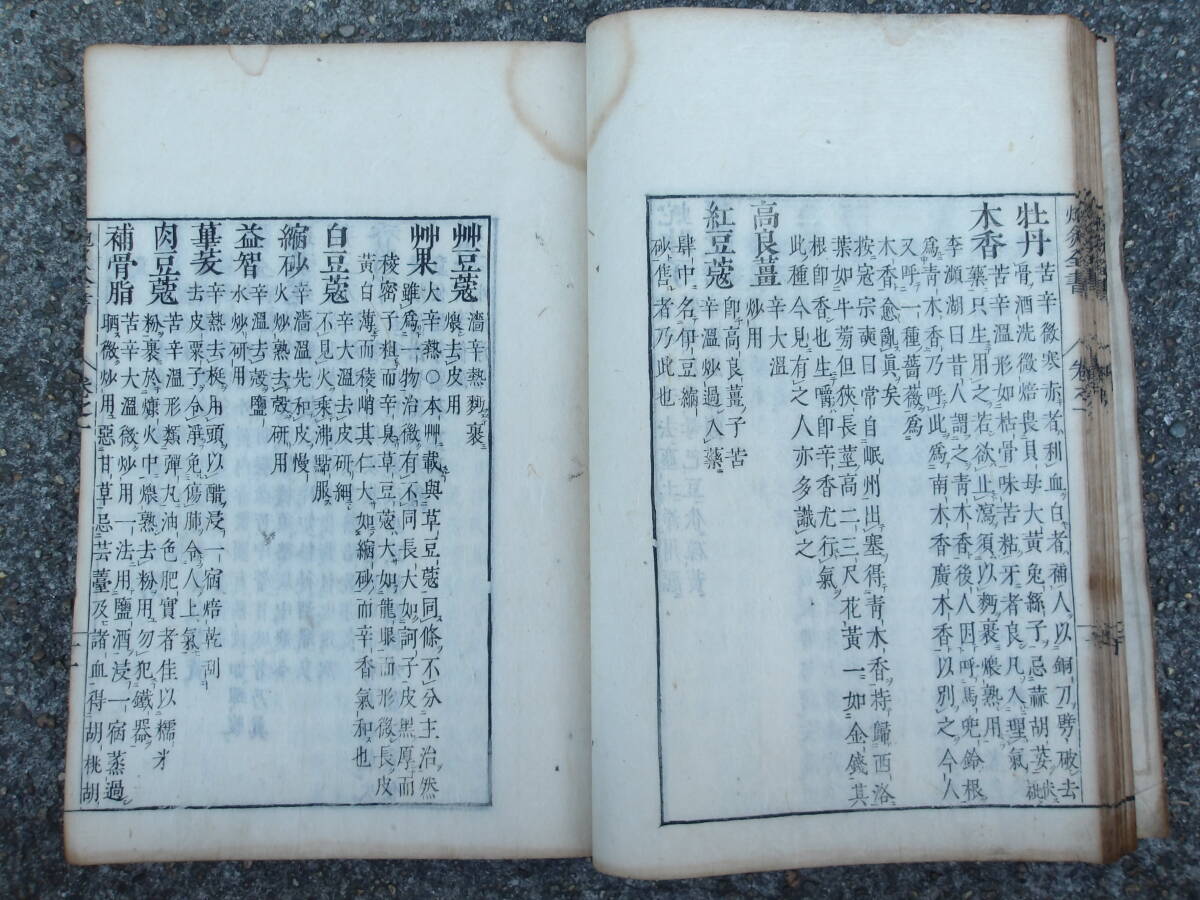 炮炙全書 卷之一
牡丹 苦辛微寒赤者利血白者補人以銅刀劈破去
骨酒洗微焙畏貝母大黃兔絲子忌蒜胡荽伏砒
木香 苦辛溫形如枯骨味苦粘牙者良凡入理氣
藥只生用之若欲止瀉須以麪裹煨熟用
李瀕湖曰昔人謂之青木香後人因呼馬兜鈴根
爲青木香乃呼此爲南木香廣木香以別之今人
又呼一種薔薇爲
木香愈亂眞矣
按寇宗奭曰常自岷州出塞得青木香持歸西洛
葉如牛蒡但狹長莖高二三尺花黃一如金錢其
根卽香也生嚼卽辛香尤行氣
此種今見有之人亦多識之
高良薑 辛大溫
炒用
紅豆蔻 卽高良薑子苦
辛溫炒過入藥
肆中一名伊豆縮
砂售者乃此也
艸豆蔻 濇辛熱麪裹
煨去皮用
艸果 大辛熱○本艸載與草豆蔻同條不分主治然
雖爲一物治微有不同長大如訶子皮黑厚而
稜密子粗而辛臭草豆蔻大如龍眼而形微長皮
黃白薄而稜峭其仁大如縮砂而辛香氣和也
白豆蔻 辛大溫去皮研細
不見火乘沸點服
縮砂 辛濇溫先和皮慢
火炒熟去殼研用
益智 辛溫去殼鹽
水炒研用
蓽茇 辛熱去梃用頭以醋浸一宿焙乾刮
去皮粟子令淨免傷肺令人上氣
肉豆蔻 苦辛溫形類彈丸油色肥實者佳以糯米
粉裹於煻火中煨熟去粉用勿犯鐵器
補骨脂 苦辛大溫微炒用一法用鹽酒浸一宿蒸過
晒微炒用惡甘草忌芸薹及諸血得胡桃胡